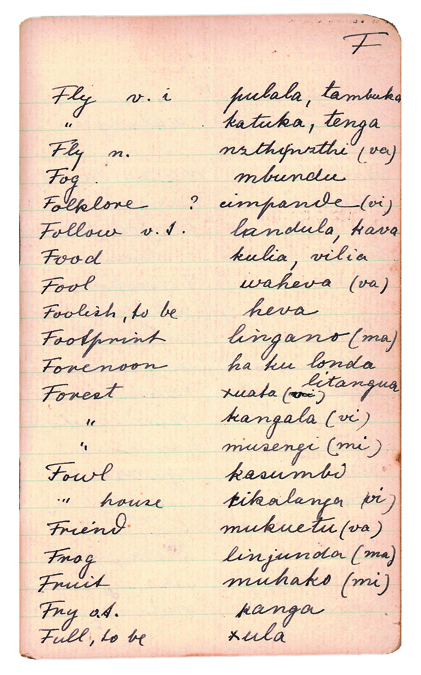 F
Fly v. i pulala, tambuka
" katuka, tenga
Fly n. (va)
Fog mbundu
Folklore ? cimpande (vi)
Follow v.t. landula, kava
Food kulia, vilia
Fool waheva (va)
Foolish, to be heva
Footprint lingano (ma)
Forenoon ha ku londa
litangua
Forest xuata
" kangala (vi)
" musengi (mi)
Fowl kasumbi
" house vi)
Friend mukuetu (va)
Frog linjunda (ma)
Fruit muhako (mi)
Fry v.t. kanga
Full, to be xula